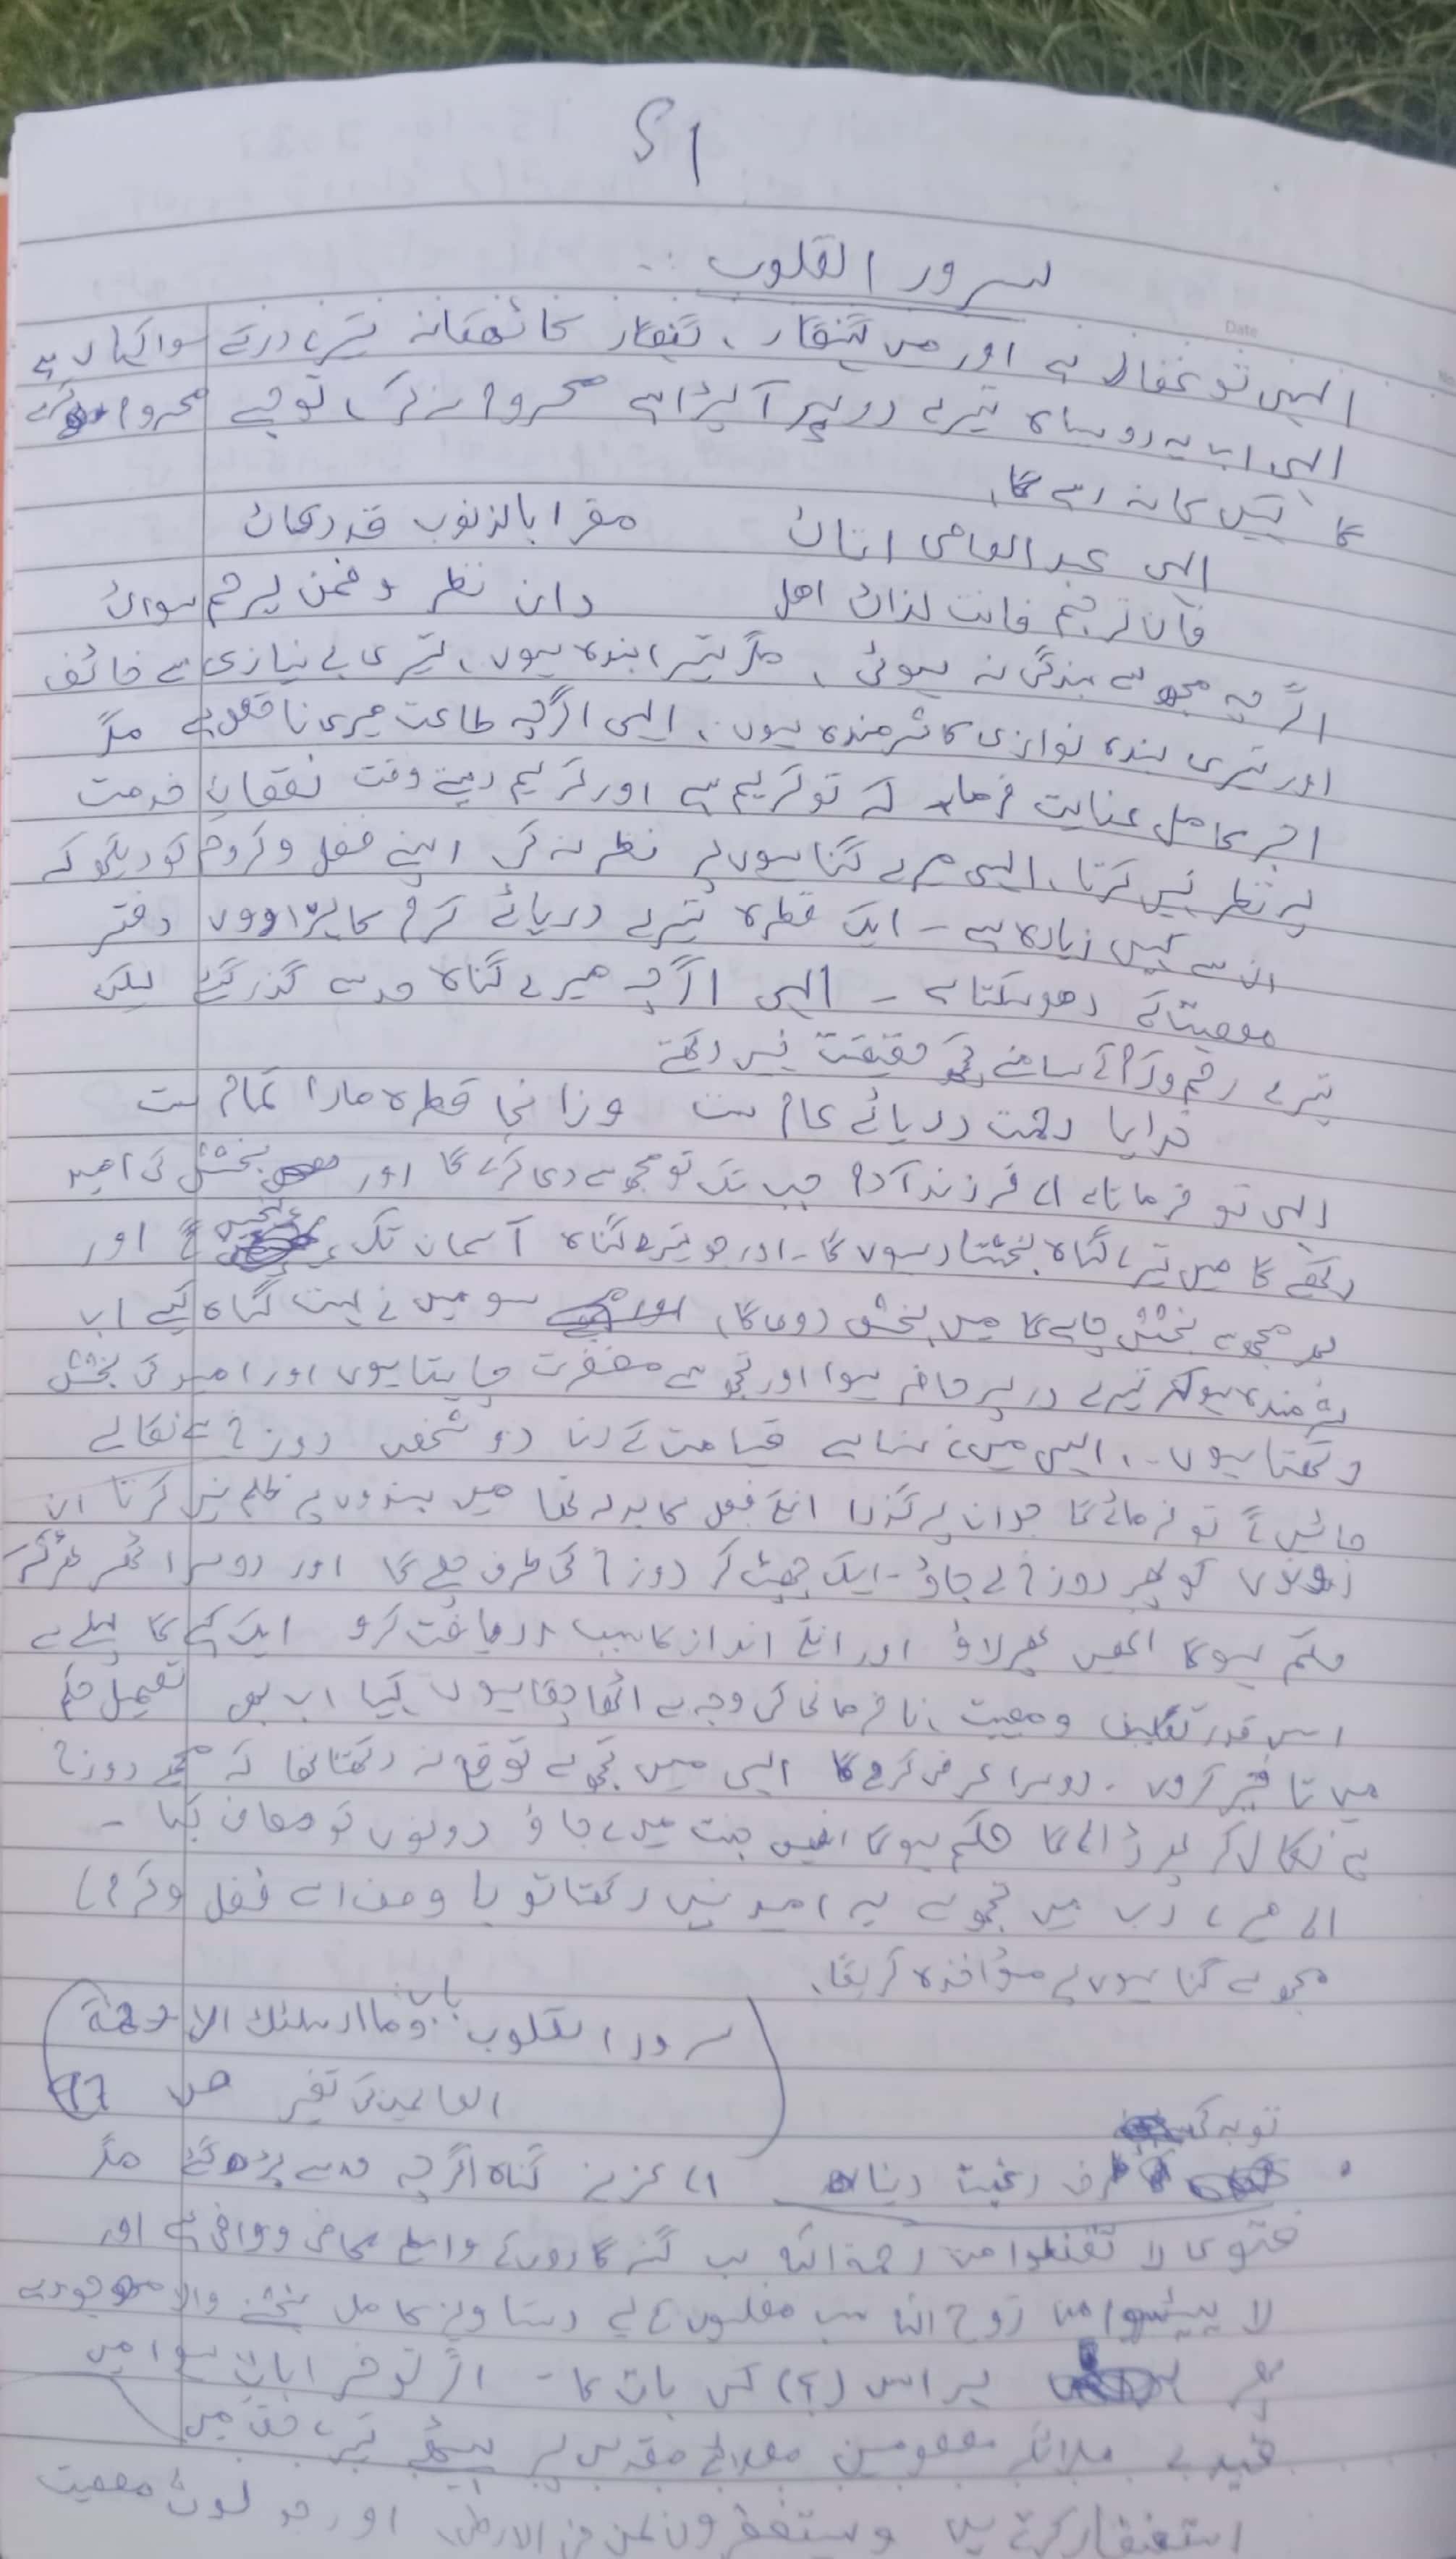 51
سرور القلوب
الہی تو غفار ہے اور میں گنہگار، گنہگار کا ٹھکانہ تیرے در کے سوا کہاں ہے
الہی اب یہ روسیاہ تیرے در پر آ پڑا ہے محروم نہ کر، تو جسے محروم کرے
گا کہیں کا نہ رہے گا۔
الہی عبد العاصی اتاک مقرا بالذنوب قد دعاک
فان ترحم فانت لذاک اھل وان تطرد فمن یرحم سواک
اگرچہ مجھ سے بندگی نہ ہوئی، مگر تیرا بندہ ہوں، تیری بے نیازی سے خائف
اور تیری بندہ نوازی کا شرمندہ ہوں، الہی اگرچہ طاعت میری ناقص ہے مگر
اجر کامل عنایت فرما کہ تو کریم ہے اور کریم دیتے وقت نقصان خدمت
پر نظر نہیں کرتا، الہی میرے گناہوں پر نظر نہ کر اپنے فضل و کرم کو دیکھ کہ
ان سے کہیں زیادہ ہے ۔ ایک قطرہ تیرے دریائے کرم کا ہزاروں دفتر
معصیت کے دھو سکتا ہے ۔ الہی اگرچہ میرے گناہ حد سے گذر گئے لیکن
تیرے رحم و کرم کے سامنے کچھ حقیقت نہیں رکھتے
خدایا رحمت دریائے عام ست وزانجا قطرہ مارا تمام ست
الہی تو فرماتا ہے اے فرزند آدم جب تک تو مجھ سے دعا کرے گا اور بخشش کی امید
رکھے گا میں تیرے گناہ بخشتا رہوں گا۔ اور جو تیرے گناہ آسمان تک پہنچیں گے اور
پھر مجھ سے بخشش چاہے گا میں بخش دوں گا، سو میں نے بہت گناہ کیے اب
شرمندہ ہوکر تیرے در پر حاضر ہوا اور تجھ سے مغفرت چاہتا ہوں اور امید کی بخشش
رکھتا ہوں۔، الہی میں نے سنا ہے قیامت کے دن دو شخص دوزخ سے نکالے
جائیں گے تو فرمائے گا جو ان پر گذرا انکے فعل کا بدلہ تھا میں بندوں پر ظلم نہیں کرتا ان
دونوں کو پھر دوزخ لے جاؤ۔ ایک جھپٹ کر دوزخ کی طرف چلے گا اور دوسرا
حکم ہوگا انھیں پھر لاؤ اور انکے انداز کا سبب دریافت کرو ایک کہے گا پہلے ہے
اس قدر تکلیف و مصیبت نافرمانی کی وجہ سے اٹھا چکا ہوں کیا اب بھی تعمیل حکم
میں تاخیر کروں۔ دوسرا عرض کرے گا الہی میں تجھ سے توقع نہ رکھتا تھا کہ مجھے دوزخ
سے نکال کر پھر ڈالے گا حکم ہوگا انھیں جنت میں لے جاؤ دونوں کو معاف کیا ۔
اے میرے رب میں تجھ سے یہ امید نہیں رکھتا تو با وصف اے فضل و کرم کے
مجھ سے گناہوں پر مؤاخذہ کریگا،
(سرور القلوب باب: وما ارسلنک الا رحمۃ
العالمین کی تفسیر ص 97)
توبہ کی
• طرف رغبت دینا اے عزیز گناہ اگرچہ حد سے بڑھ گئے مگر
فتوی لا تقنطوا من رحمۃ اللہ سب گنہگاروں کے واسطے کافی و وافی ہے اور
لا ییئسوا من روح اللہ سب مفلسوں کے لیے دستاویز کامل بخشنے والا موجود ہے
پھر ہراس (؟) کس بات کا ۔ اگر تو خرابات ہوا میں
قید ہے ملائکہ معصومین مصلائے مقدس پر بیٹھے تیرے حق میں
استغفار کرتے ہیں ویستغفرون لمن فی الارض، اور جو لوث معصیت